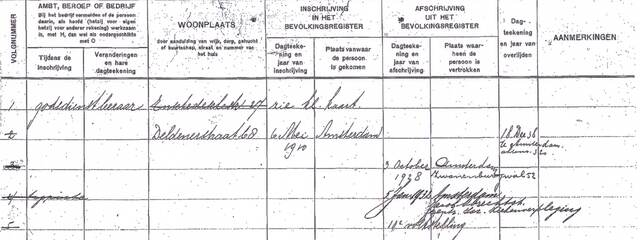 VOLGNUMMER
AMBT, BEROEP OF BEDRIJF
Bij het bedrijf vermelden of de persoon
daarin, als hoofd (hetzij voor eigen
hetzij voor andere rekening) werkzaam
is, met H, dan wel als ondergeschikte
met O
Tijdens de
inschrijving
Veranderingen
en hare
dagteekening
WOONPLAATS
door aanduiding van wijk, dorp, gehucht
of buurtschap, straat en nummer van
het huis
INSCHRIJVING
IN HET
BEVOLKINGSREGISTER
Dagteeke-
ning en
jaar van
inschrijving
Plaats vanwaar
de persoon
is gekomen
AFSCHRIJVING
UIT HET
BEVOLKINGSREGISTER
Dagteeke-
ning en
jaar van
afschrijving
Plaats waar-
heen de
persoon is
vertrokken
Dag-
teekening
en jaar van
overlijden
AANMERKINGEN
1 godsdienstleeraar 27 zie kl. kaart
2 Deldenerstraat 68 6 Mei Amsterdam 18 Dec 36
1910 te Amsterdam
3 3 October Amsterdam
1938 Zwanenburgwal 52
4 5 Jan 1932 Amsterdam
5 11e volkstelling